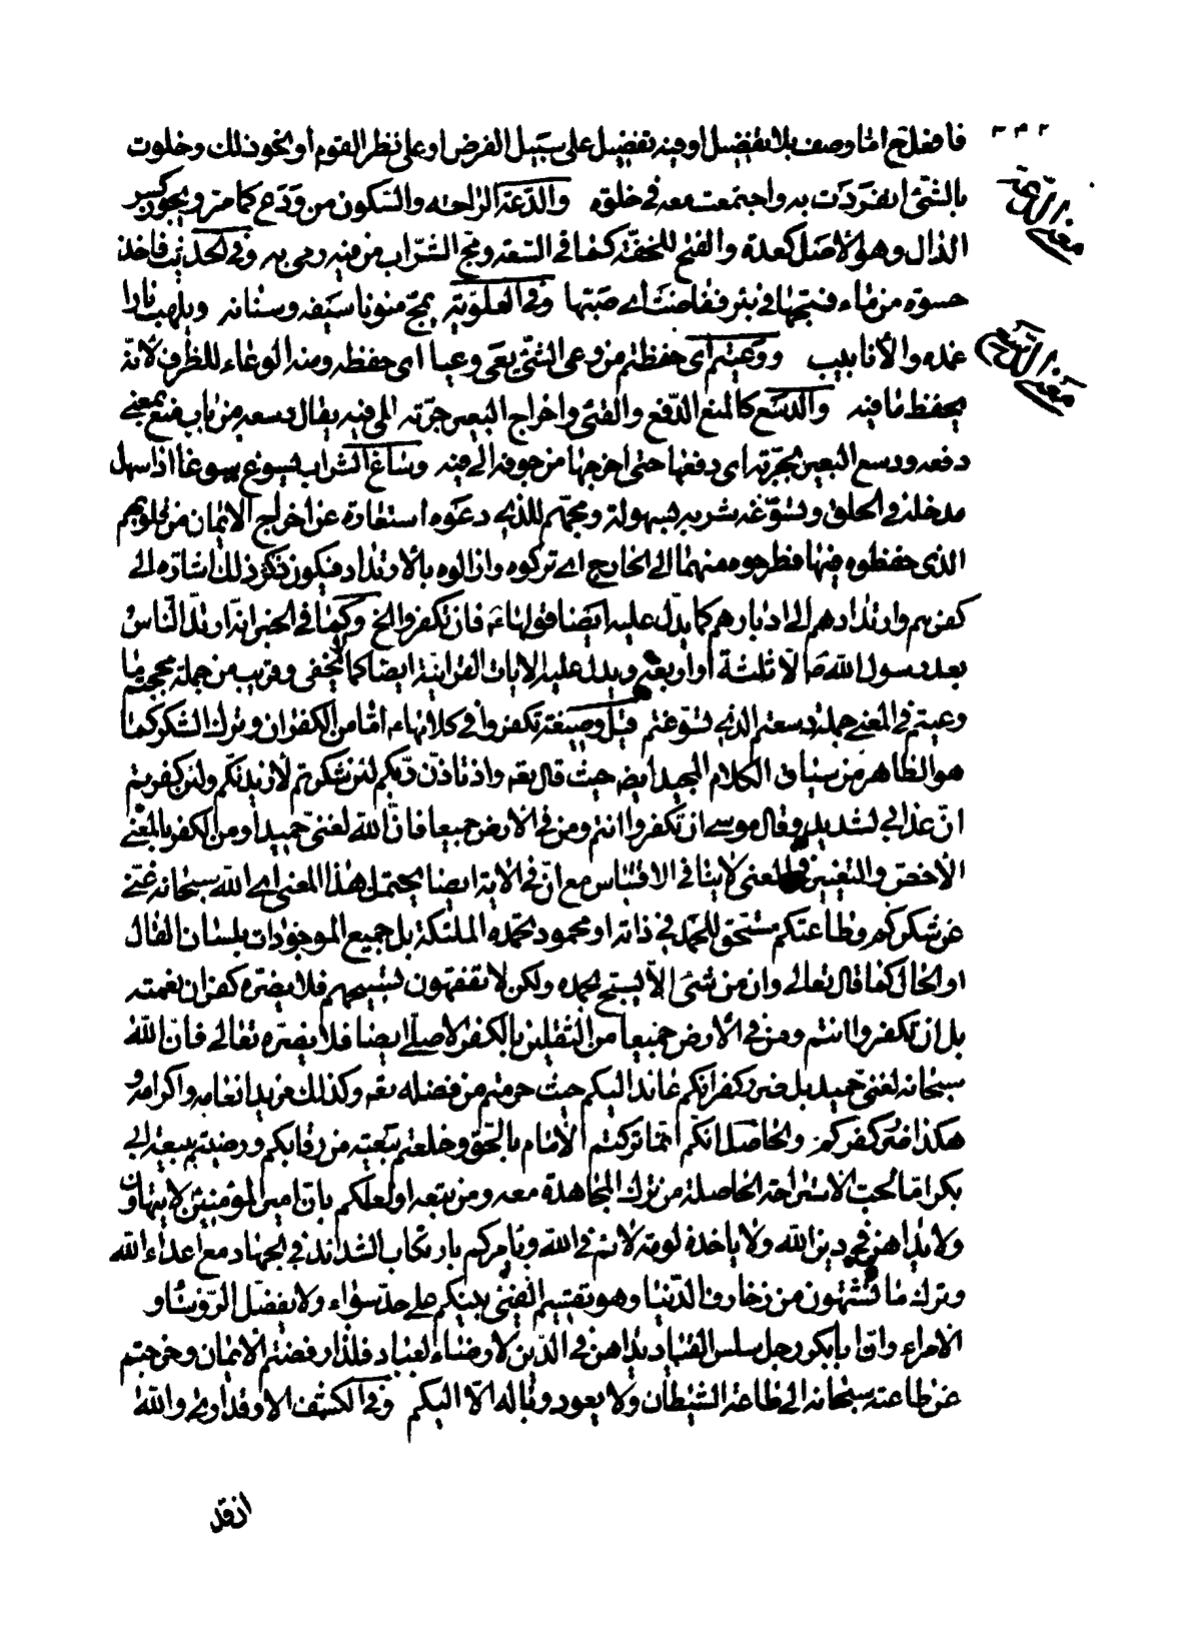 فافعل ح امّا وصف بلا تفضيل او فيه تفضيل على سبيل الفرض او على نظر القوم او نحو ذلك وخلوت
بالشئ انفردت به واجتمعت معه فى خلوة والدّعة الراحة والسّكون من ودع كما مرّ ويجوز كسر
الدال وهو الأصل كعدة والفتح للخفّة كما فى السّعة ومجّ الشّراب من فيه رمى به وفى الحديث فاخذ
حسوة من ماء فمجّها فى بئر ففاضت اى صبّتها وفى العلويّة يمجّ منونا سيفه وسنانه ويلهب نارا
غمده والأنابيب ووعيتم اى حفظتم من وعى الشئ يعى وعيا اى حفظه ومنه الوعاء للظرف لانّه
يحفظ ما فيه والدّسع كالمنع الدّفع والقئ واخراج البعير جرّته الى فيه يقال دسعه من باب منع بمعنى
دفعه ودسع البعير بجرّته اى دفعها حتى اخرجها من جوفه الى فيه وساغ الشراب يسوغ سوغا اذا سهل
مدخله فى الحلق وتسوّغه شربه بسهولة ومجّهم للذى دعوه استعارة عن اخراج الايمان من قلوبهم
الذى حفظوه فيها فطرحوه منها الى الخارج اى تركوه وازالوه بالارتداد فيكون ذكر ذلك اشارة الى
كفرهم وارتدادهم الى ادبارهم كما يدّل عليه ايضا قولها ع فان تكفروا الخ وكما فى الخبر انه ارتدّ النّاس
بعد رسول الله ص الّا ثلثة او اربعة ويدل عليه الايات القرانيّة ايضا كما لا يخفى وقريب من جملة مججتم ما
وعيتم فى المعنى جملة دسعتم الذى تسوّغتم قيل وصيغة تكفروا فى كلامها ع امّا من الكفران وترك الشكر كما
هو الظاهر من سياق الكلام المجيد ايضا حيث قال تعه واذ تاذّن ربّكم لئن شكرتم لازيدنّكم ولئن كفرتم
انّ عذابى لشديد وقال موسى ان تكفروا انتم ومن فى الارض جميعا فانّ الله لغنىّ حميد او من الكفر بالمعنى
الأخصّ والتغيير فى المعنى لا ينافى الاقتباس مع انّ فى الآية ايضا يحتمل هذا المعنى اى الله سبحانه غنىّ
عن شكركم وطاعتكم مستحق للحمد فى ذاته او محمود تحمده الملئكة بل جميع الموجودات بلسان القال
او الحال كما قال تعالى وان من شئ الّا يسبّح بحمده ولكن لا تفقهون تسبيحهم فلا يضرّه كفران نعمته
بل ان تكفروا انتم ومن فى الأرض جميعا من الثقلين بالكفر الاصلى ايضا فلا يضرّه تعالى فانّ الله
سبحانه لغنىّ حميد بل ضرر كفرانكم عائد اليكم حيث حرمتم من فضله تعه وكذلك مزيد انعامه واكرامه و
هكذا ضرر كفركم والحاصل انّكم انّما تركتم الامام بالحقّ وخلعتم بيعته من رقابكم ورضيتم ببيعة ابى
بكر امّا لحبّ الاستراحة الحاصلة من ترك المجاهدة معه ومن يتبعه او لعلكم بانّ امير المؤمنين لا يتهاون
ولا يداهن فى دين الله ولا ياخذه لومة لائم فى الله ويامركم بارتكاب الشدائد فى الجهاد مع اعداء الله
وترك ما تشتهون من زخارف الدّنيا وهو تقسيم الفئ بينكم على حدّ سواء ولا يفضّل الرّؤسآء و
الامراء وانّ ابابكر رجل سلس القياد يداهن فى الدّين لارضاء العباد فلذا رفضتم الايمان وخرجتم
عن طاعته سبحانه الى طاعة الشيطان ولا يعود وباله الّا اليكم وفى الكشف الا وقد ارى والله
ان قد
٢٣٢
معنى الدّعة
معنى الدّسع